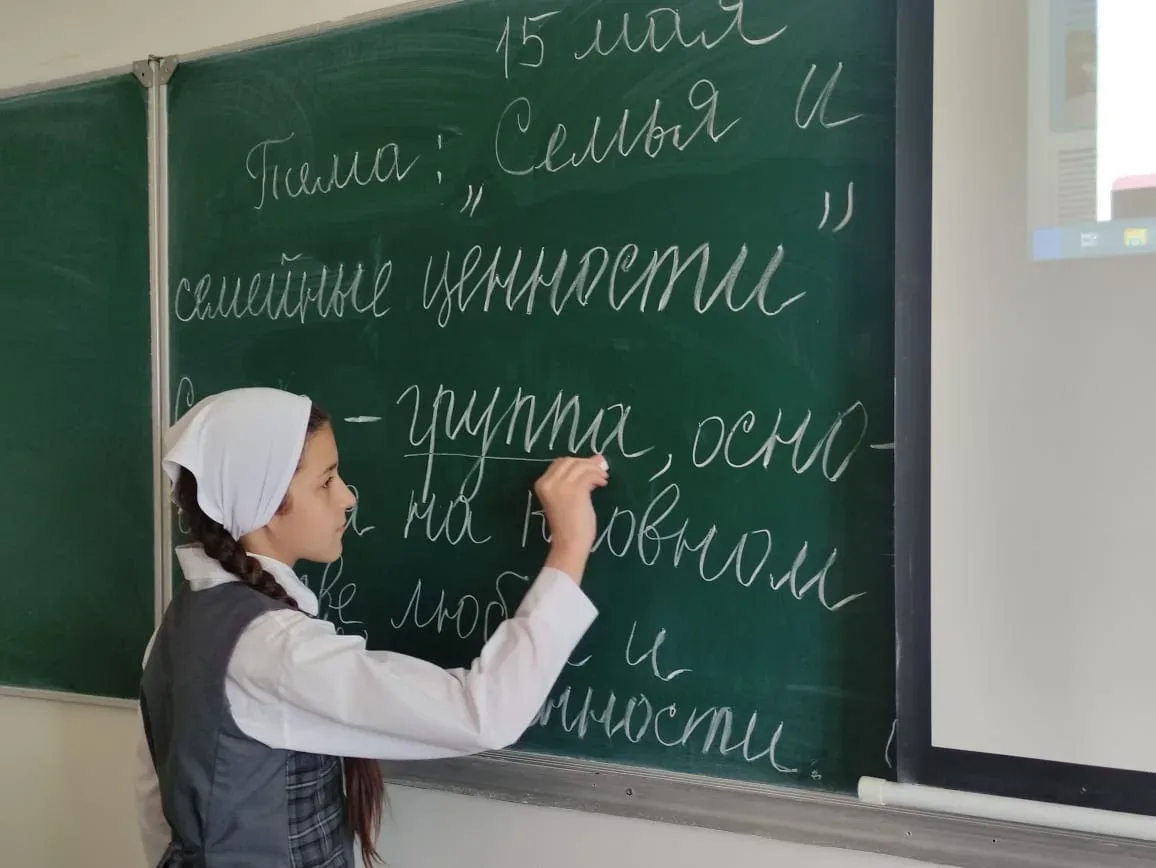 15 мая
Тема: „Семья и
семейные ценности"
– группа, осно-
на кровном
люб и
нности.